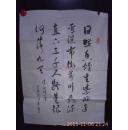 日照香炉生紫烟遥
看瀑布挂前川飞流
直下三千尺疑是银
河落九天
2015-11-06 21:24